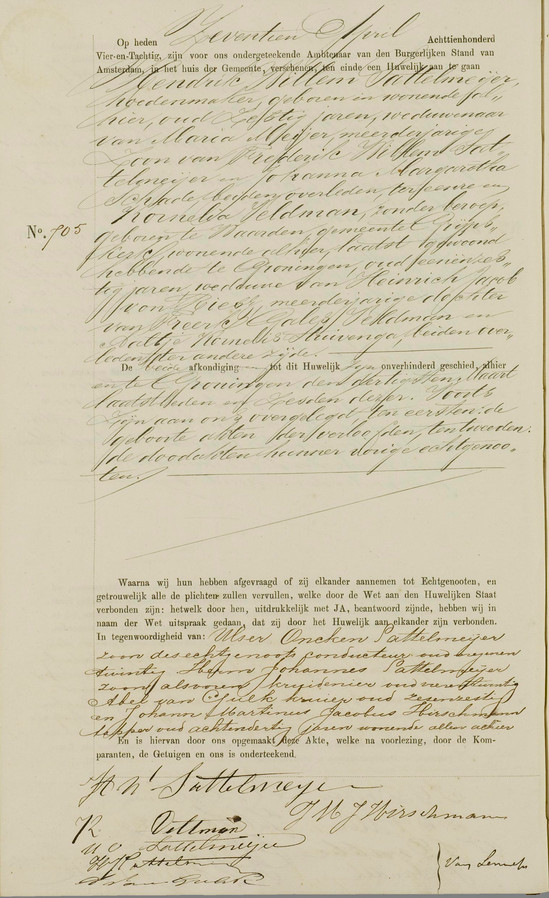 Op heden Zeventien April Achttienhonderd
Vier-en-Tachtig, zijn voor ons ondergeteekende Ambtenaar van den Burgerlijken Stand van
Amsterdam, in het huis der Gemeente, verschenen, ten einde een Huwelijk aan te gaan
Hendrik Willem Sattelmeijer,
hoedenmaker, geboren en wonende al-
hier, oud zestig jaren, weduwenaar
van Maria Meijer, meerderjarige
zoon van Frederik Wilhelm Sat-
telmeijer en Johanna Margaretha
Schade, beiden overleden, ter eenre en
Kornelia Veldman, zonder beroep,
No. 705
geboren te Waarden, gemeente Grijps-
kerk, wonende alhier, laatst gewoond
hebbende te Groningen, oud een en zes-
tig jaren, weduwe van Heinrich Jacob
von Diest, meerderjarige dochter
van Freerk Gales Veldman en
Kornelis Huizenga, beiden over-
leden, ter andere zijde.
De beide afkondiging tot dit Huwelijk zijn onverhinderd geschied, alhier
en te Groningen den dertigsten Maart
laatstleden en zesden dezer. Voorts
zijn aan ons overgelegd ten eersten: de
geboorte akten der verloofden, ten tweeden:
de doodakten hunner vorige echtgenoo-
ten.
Waarna wij hun hebben afgevraagd of zij elkander aannemen tot Echtgenooten, en
getrouwelijk alle de plichten zullen vervullen, welke door de Wet aan den Huwelijken Staat
verbonden zijn: hetwelk door hen, uitdrukkelijk met JA, beantwoord zijnde, hebben wij in
naam der Wet uitspraak gedaan, dat zij door het Huwelijk aan elkander zijn verbonden.
In tegenwoordigheid van: Ulser Oncken Sattelmeijer
zoon des echtgenoots conducteur oud negenen
twintig Herm Johannes Sattelmeijer
zoon alsvoren kruidenier oud vierentwintig
Abel van Gulik kruier oud zesenzestig
en Johann Martinus Jacobus Hirschmann
tapper oud achtendertig jaren wonende allen alhier
En is hiervan door ons opgemaakt deze Akte, welke na voorlezing, door de Kom-
paranten, de Getuigen en ons is onderteekend.
H W Sattelmeijer
J M J Hirschmann
K. Veltman
U O Sattelmeijer
H J Sattelmeijer
A van Gulik
Van Lennep